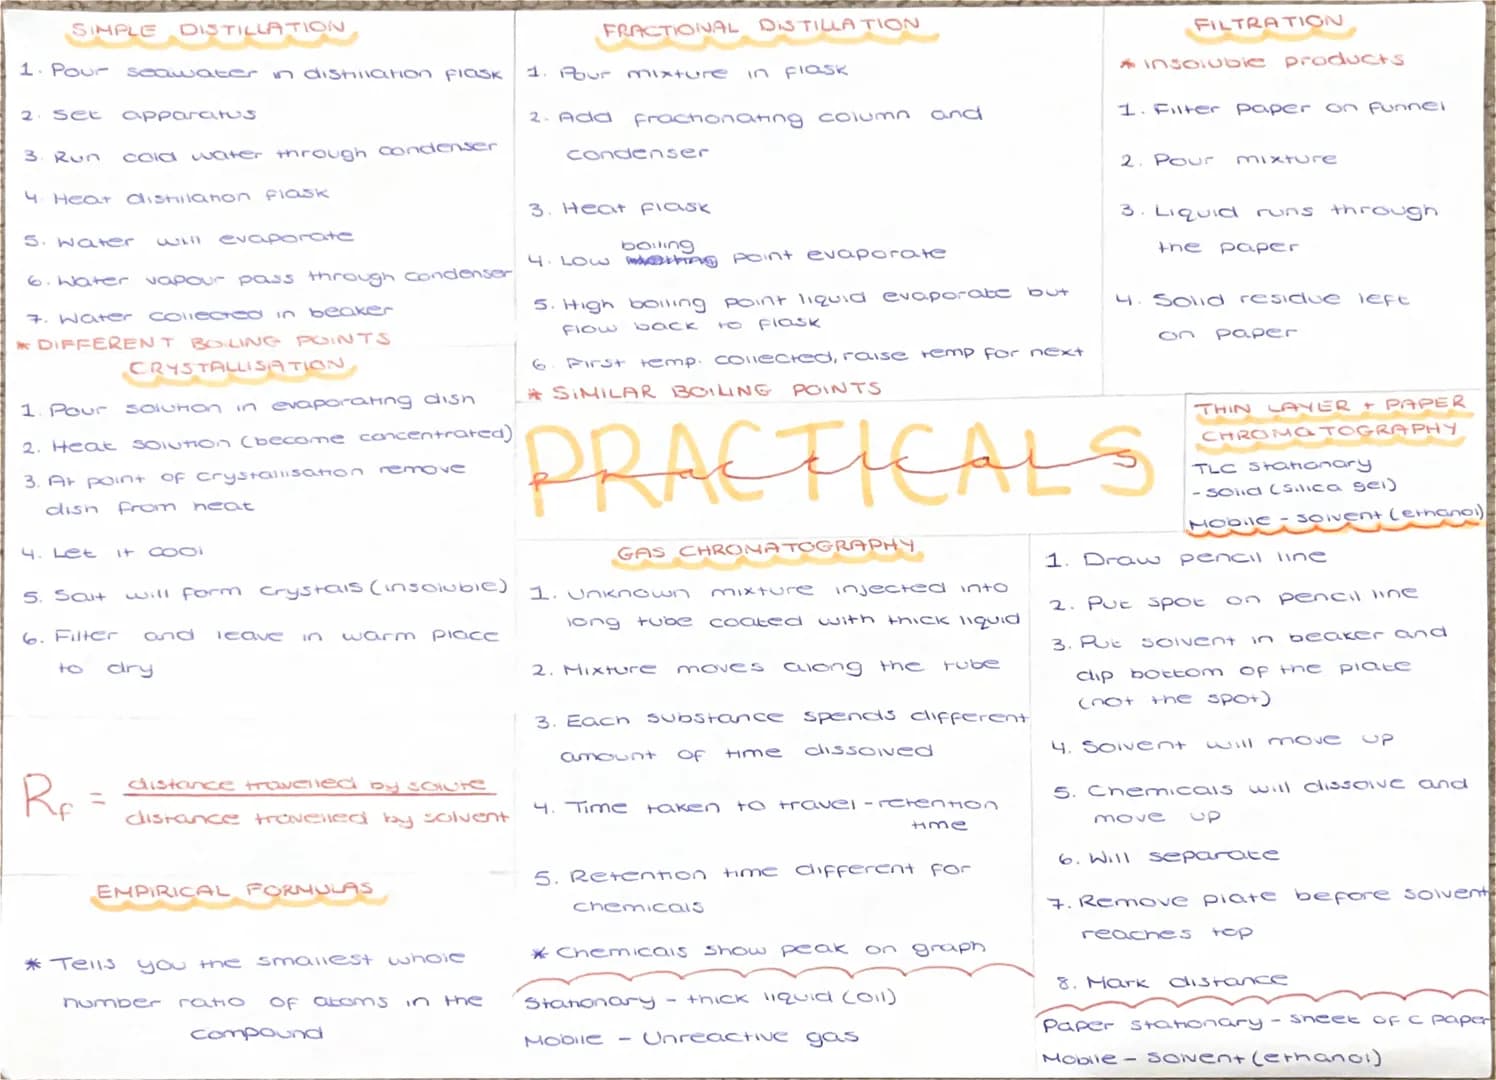 SIMPLE DISTILLATION
1. Pour seawater in distillation flask
2. Set apparatus
3. Run cold water through condenser
4. Heat distillation flask
5. Water will evaporate
6. Water vapour pass through condenser
7. Water collected in beaker
* DIFFERENT BOILING POINTS
CRYSTALLISATION
1. Pour solution in evaporating dish
2. Heat solution (become concentrated)
3. At point of crystallisation remove
dish from heat
4. Let it cool
5. Salt will form crystals (insoluble)
6. Filter and leave in warm place
to dry
Rf = distance travelled by solute
distance travelled by solvent
EMPIRICAL FORMULAS
* Tells you the smallest whole
number ratio of atoms in the
compound
FRACTIONAL DISTILLATION
1. Pour mixture in flask
2. Add fractionating column and
condenser
3. Heat flask
boiling
4. Low point evaporate
5. High boiling point liquid evaporate but
flow back to flask
6. First temp. collected, raise temp for next
* SIMILAR BOILING POINTS
FILTRATION
* insoluble products
1. Filter paper on funnel
2. Pour mixture
3. Liquid runs through
the paper
4. Solid residue left
on paper
PRACTICALS
practicals
GAS CHROMATOGRAPHY
1. Unknown mixture injected into
long tube coated with thick liquid
2. Mixture moves along the tube
3. Each substance spends different
amount of time dissolved
4. Time taken to travel - retention
time
5. Retention time different for
chemicals
* Chemicals show peak on graph
Stationary - thick liquid (oil)
Mobile - Unreactive gas
THIN LAYER + PAPER
CHROMATOGRAPHY
TLC stationary
- solid (silica gel)
Mobile - solvent (ethanol)
1. Draw pencil line
2. Put spot on pencil line
3. Put solvent in beaker and
dip bottom of the plate
(not the spot)
4. Solvent will move up
5. Chemicals will dissolve and
move up
6. Will separate
7. Remove plate before solvent
reaches top
8. Mark distance
Paper stationary - sheet of c paper
Mobile - solvent (ethanol)